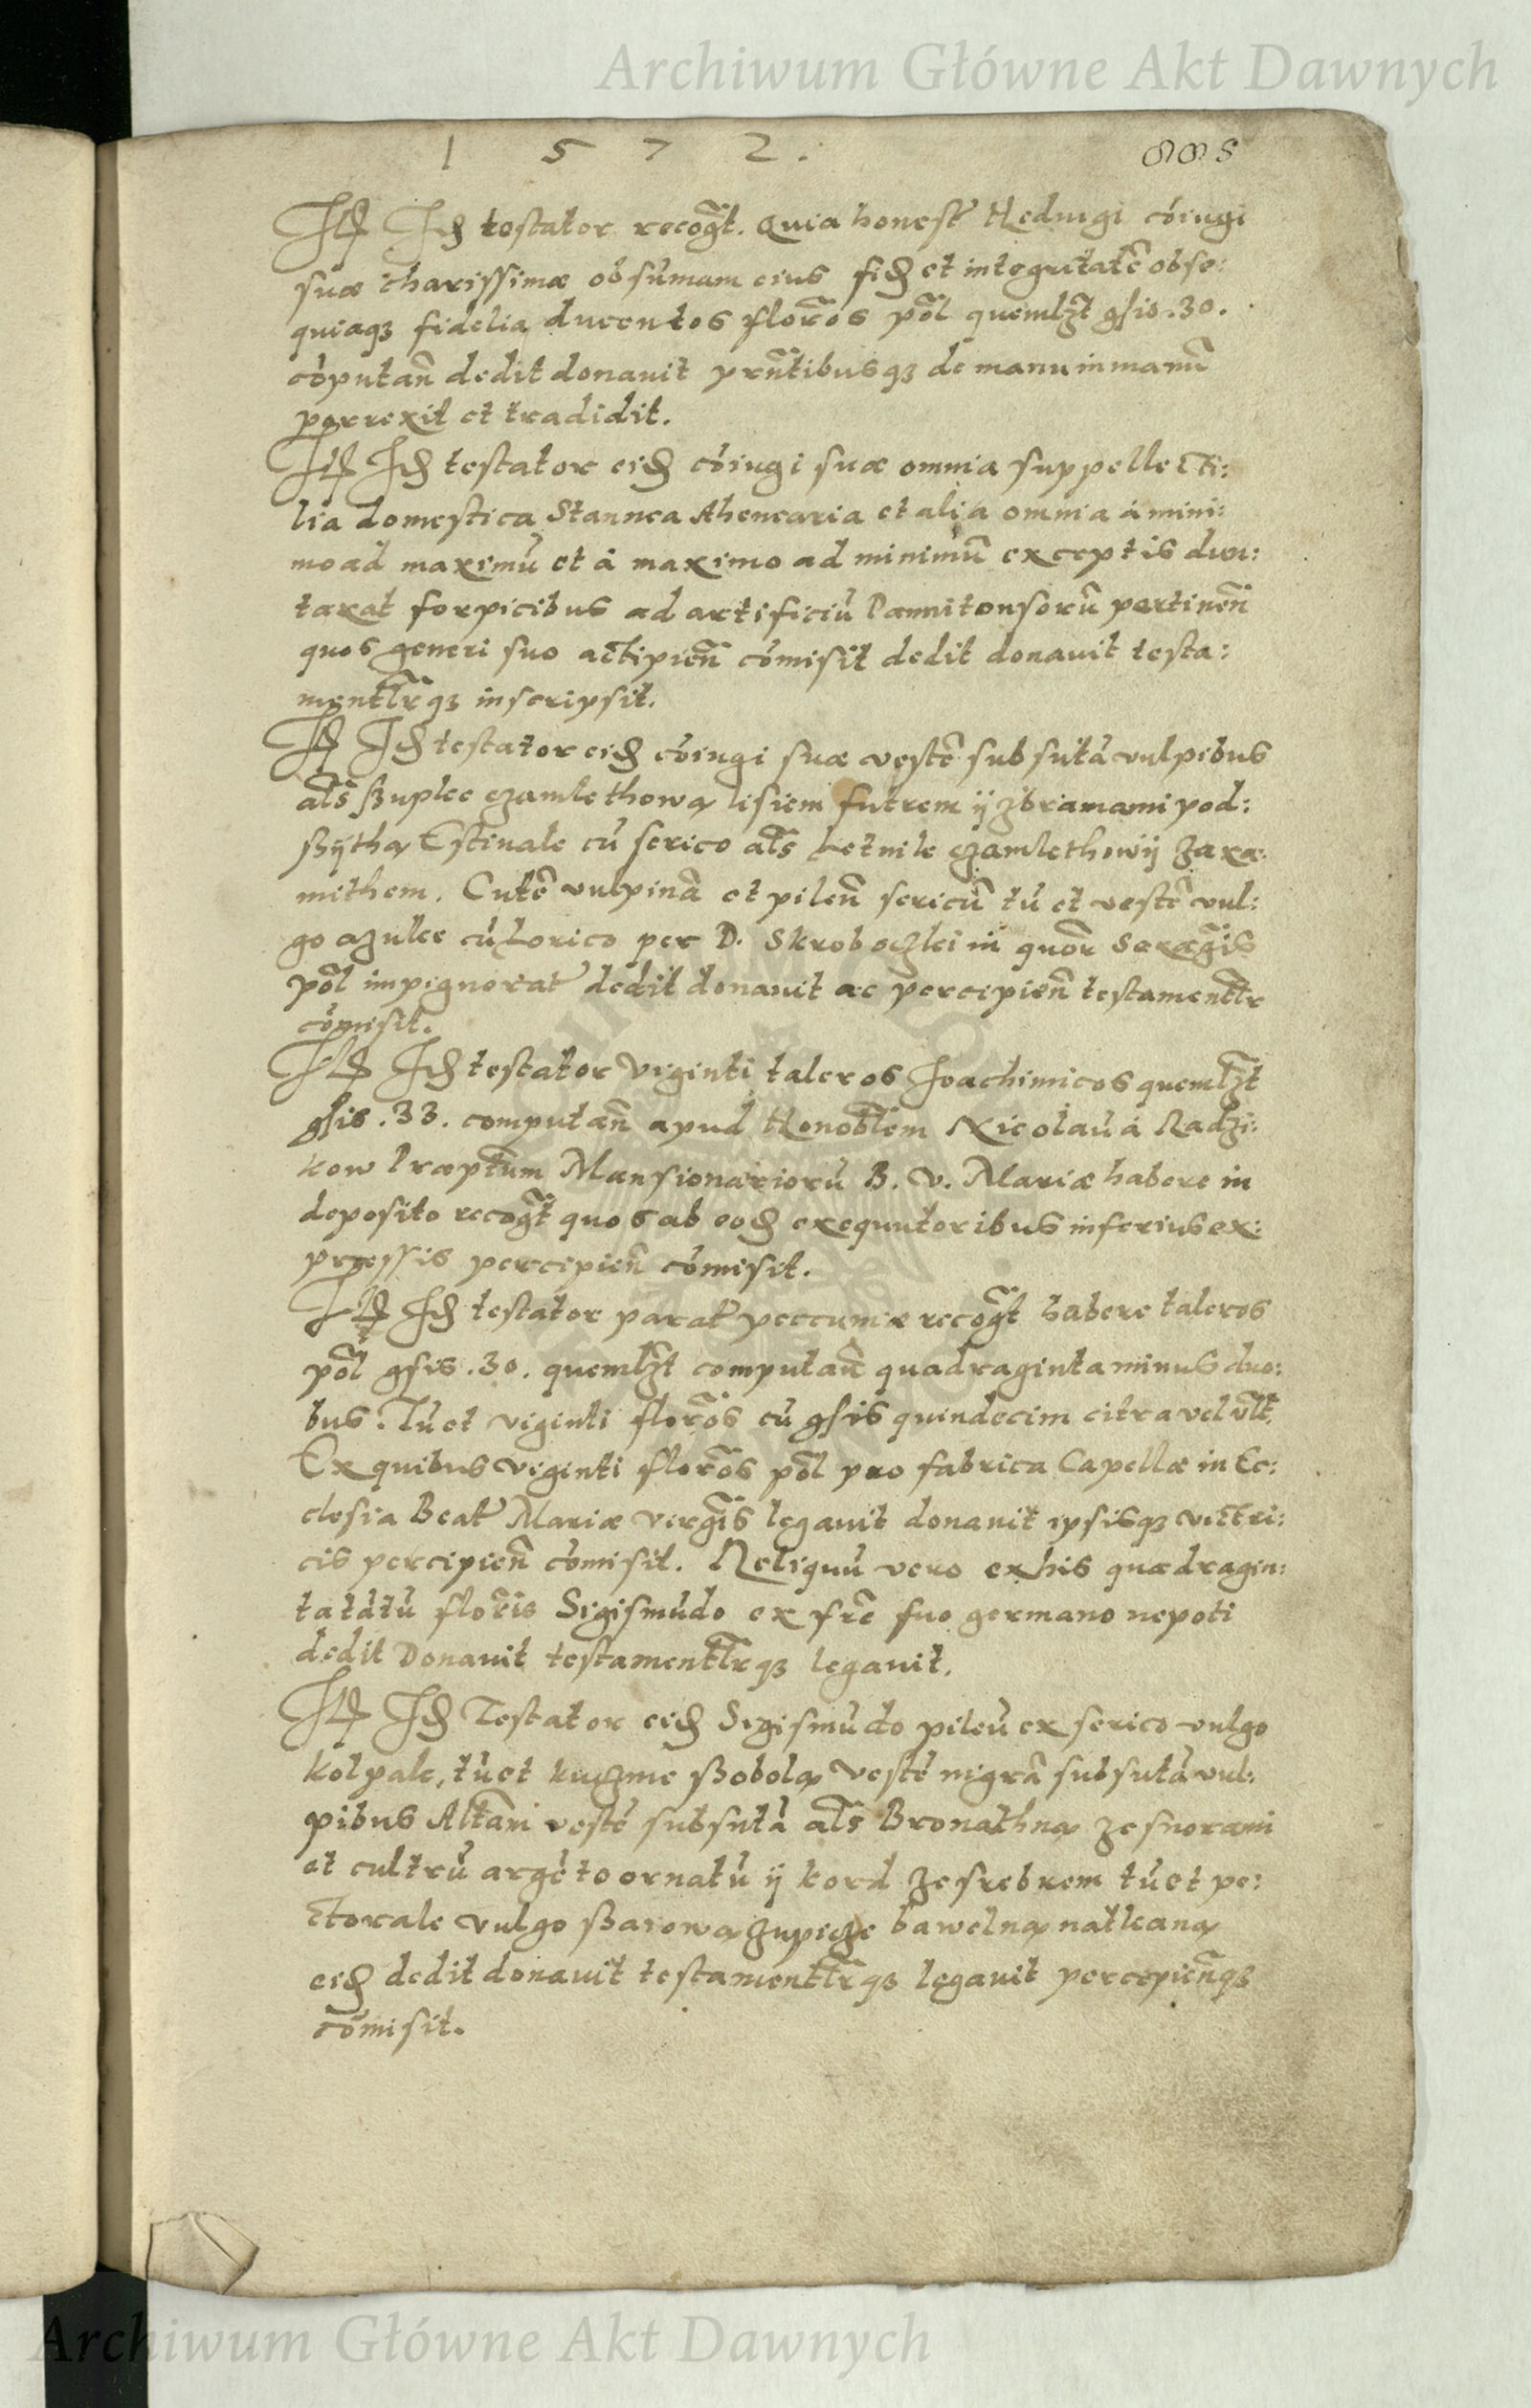 Archiwum Główne Akt Dawnych
1 5 7 2 .
Itm Idem testator recogt. Quia honest Hedwigi coiugi
suæ charissimæ ob sūmam eius fidem et integritatē obse:
quiaq3 fidelia ducentos florōs pōl quemlzt gsis .30.
cōputan̄ dedit donavit prn̄tibusq3 de manu in manū
porrexit et tradidit.
Itm Idem testator eidem cōiugi suæ omnia suppellecti:
lia domestica Stannea Ahenearia et alia omnia à mini:
mo ad maximū et à maximo ad minimū exceptis dun:
taxat forpicibus ad artificiū Pannitonsorū pertinen̄
quos generi suo accipien̄ cōmisit dedit donavit testa:
mentlrq3 inscripsit.
Itm Idem testator eidem cōiugi suæ vestē subsutā vulpibus
als ßuplee czamlethową lisiem futrem ÿ zbramami pod:
ßÿthą Estivale cū serico als Letnile czamlethowÿ zaxa:
mithem. Cutē vulpinā et pileū sericū tū et vestē vul:
go azulee cū Lorico per D. Skroboczlei in quor Sexagis
pōl impignorat dedit donavit ac percipien̄ testamentlr
cōmisit.
Itm Idem testator Viginti taleros Joachimicos quemlzt
gsis .33. computan̄ apud Honoblem Nicolaū à Radzi:
kow Præptum Mansionariorū B. V. Mariæ habere in
deposito recogt quos ab eodem exequutoribus inferius ex:
pressis percipien̄ cōmisit.
Itm Idem testator parat peccuniæ recogt habere taleros
pōl gsis .30. quemlzt computan̄ quadraginta minus duo:
bus. Tū et viginti florōs cū gsis quindecim citra vel ult.
Ex quibus viginti florōs pōl pro fabrica Capellæ in Ec:
clesia Beat Mariæ virgis legavit donavit ipsisq3 vittri:
cis percipien̄ cōmisit. Reliquū vero ex his quadragin:
ta tātū floris Sigismūdo ex fre suo germano nepoti
dedit Donavit testamentlrq3 legavit.
Itm Idem Testator eidem Sigismūdo pileū ex serico vulgo
kolpale, tū et kuczme ßobolą vestē nigrā subsutā vul:
pibus Altam vestē subsutā als Bronathną ze snorami
et cultrū argēto ornatū ÿ kord ze srebrem tū et pe:
ctorale vulgo ßarową zupicze bawelną natkaną
eidem dedit donavit testamentlrq3 legavit percipien̄q3
cōmisit.
Archiwum Główne Akt Dawnych